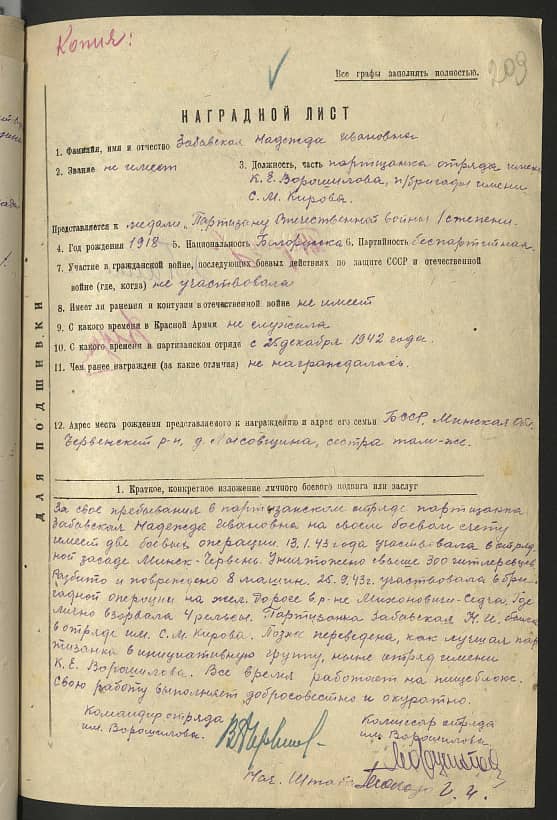 Копия:
209
Все графы заполнять полностью.
НАГРАДНОЙ ЛИСТ
1. Фамилия, имя и отчество Забавская Надежда Ивановна
2. Звание не имеет
3. Должность, часть партизанка отряда имени
К.Е. Ворошилова, п/бригады имени
С.М. Кирова.
Представляется к медали „Партизану Отечественной войны I степени.
4. Год рождения 1918 5. Национальность Белоруска 6. Партийность беспартийная
7. Участие в гражданской войне, последующих боевых действиях по защите СССР и отечественной
войне (где, когда) не участвовала
8. Имеет ли ранения и контузии в отечественной войне не имеет
9. С какого времени в Красной Армии не служила
10. С какого времени в партизанском отряде с 25 декабря 1942 года.
11. Чем ранее награжден (за какие отличия) не награждалась.
12. Адрес места рождения представляемого к награждению и адрес его семьи БССР, Минская обл.
Червенский р-н, д. сестра там-же.
ДЛЯ ПОДШИВКИ
1. Краткое, конкретное изложение личного боевого подвига или заслуг
За свое пребывания в партизанском отряде партизанка
Забавская Надежда Ивановна на своем боевом счету
имеет две боевых операции. 13.1.43 года участвовала в отряд-
ной засаде Минск-Червень. Уничтожено свыше 300 гитлеровцев,
Разбито и повреждено 8 машин. 26.9.43 г. участвовала в бри-
гадной операции на жел. дороге в р-не Михановичи-Седча. Где
лично взорвала 4 рельсы. Партизанка Забавская Н.И. была
в отряде им. С.М. Кирова. Позже переведена, как лучшая пар-
тизанка в инициативную группу, ныне отряд имени
К.Е. Ворошилова. Все время работает на пищеблоке.
Свою работу выполняет добросовестно и акуратно.
Командир отряда
им. Ворошилова.
Комиссар отряда
им. Ворошилова
Нач. Штаба